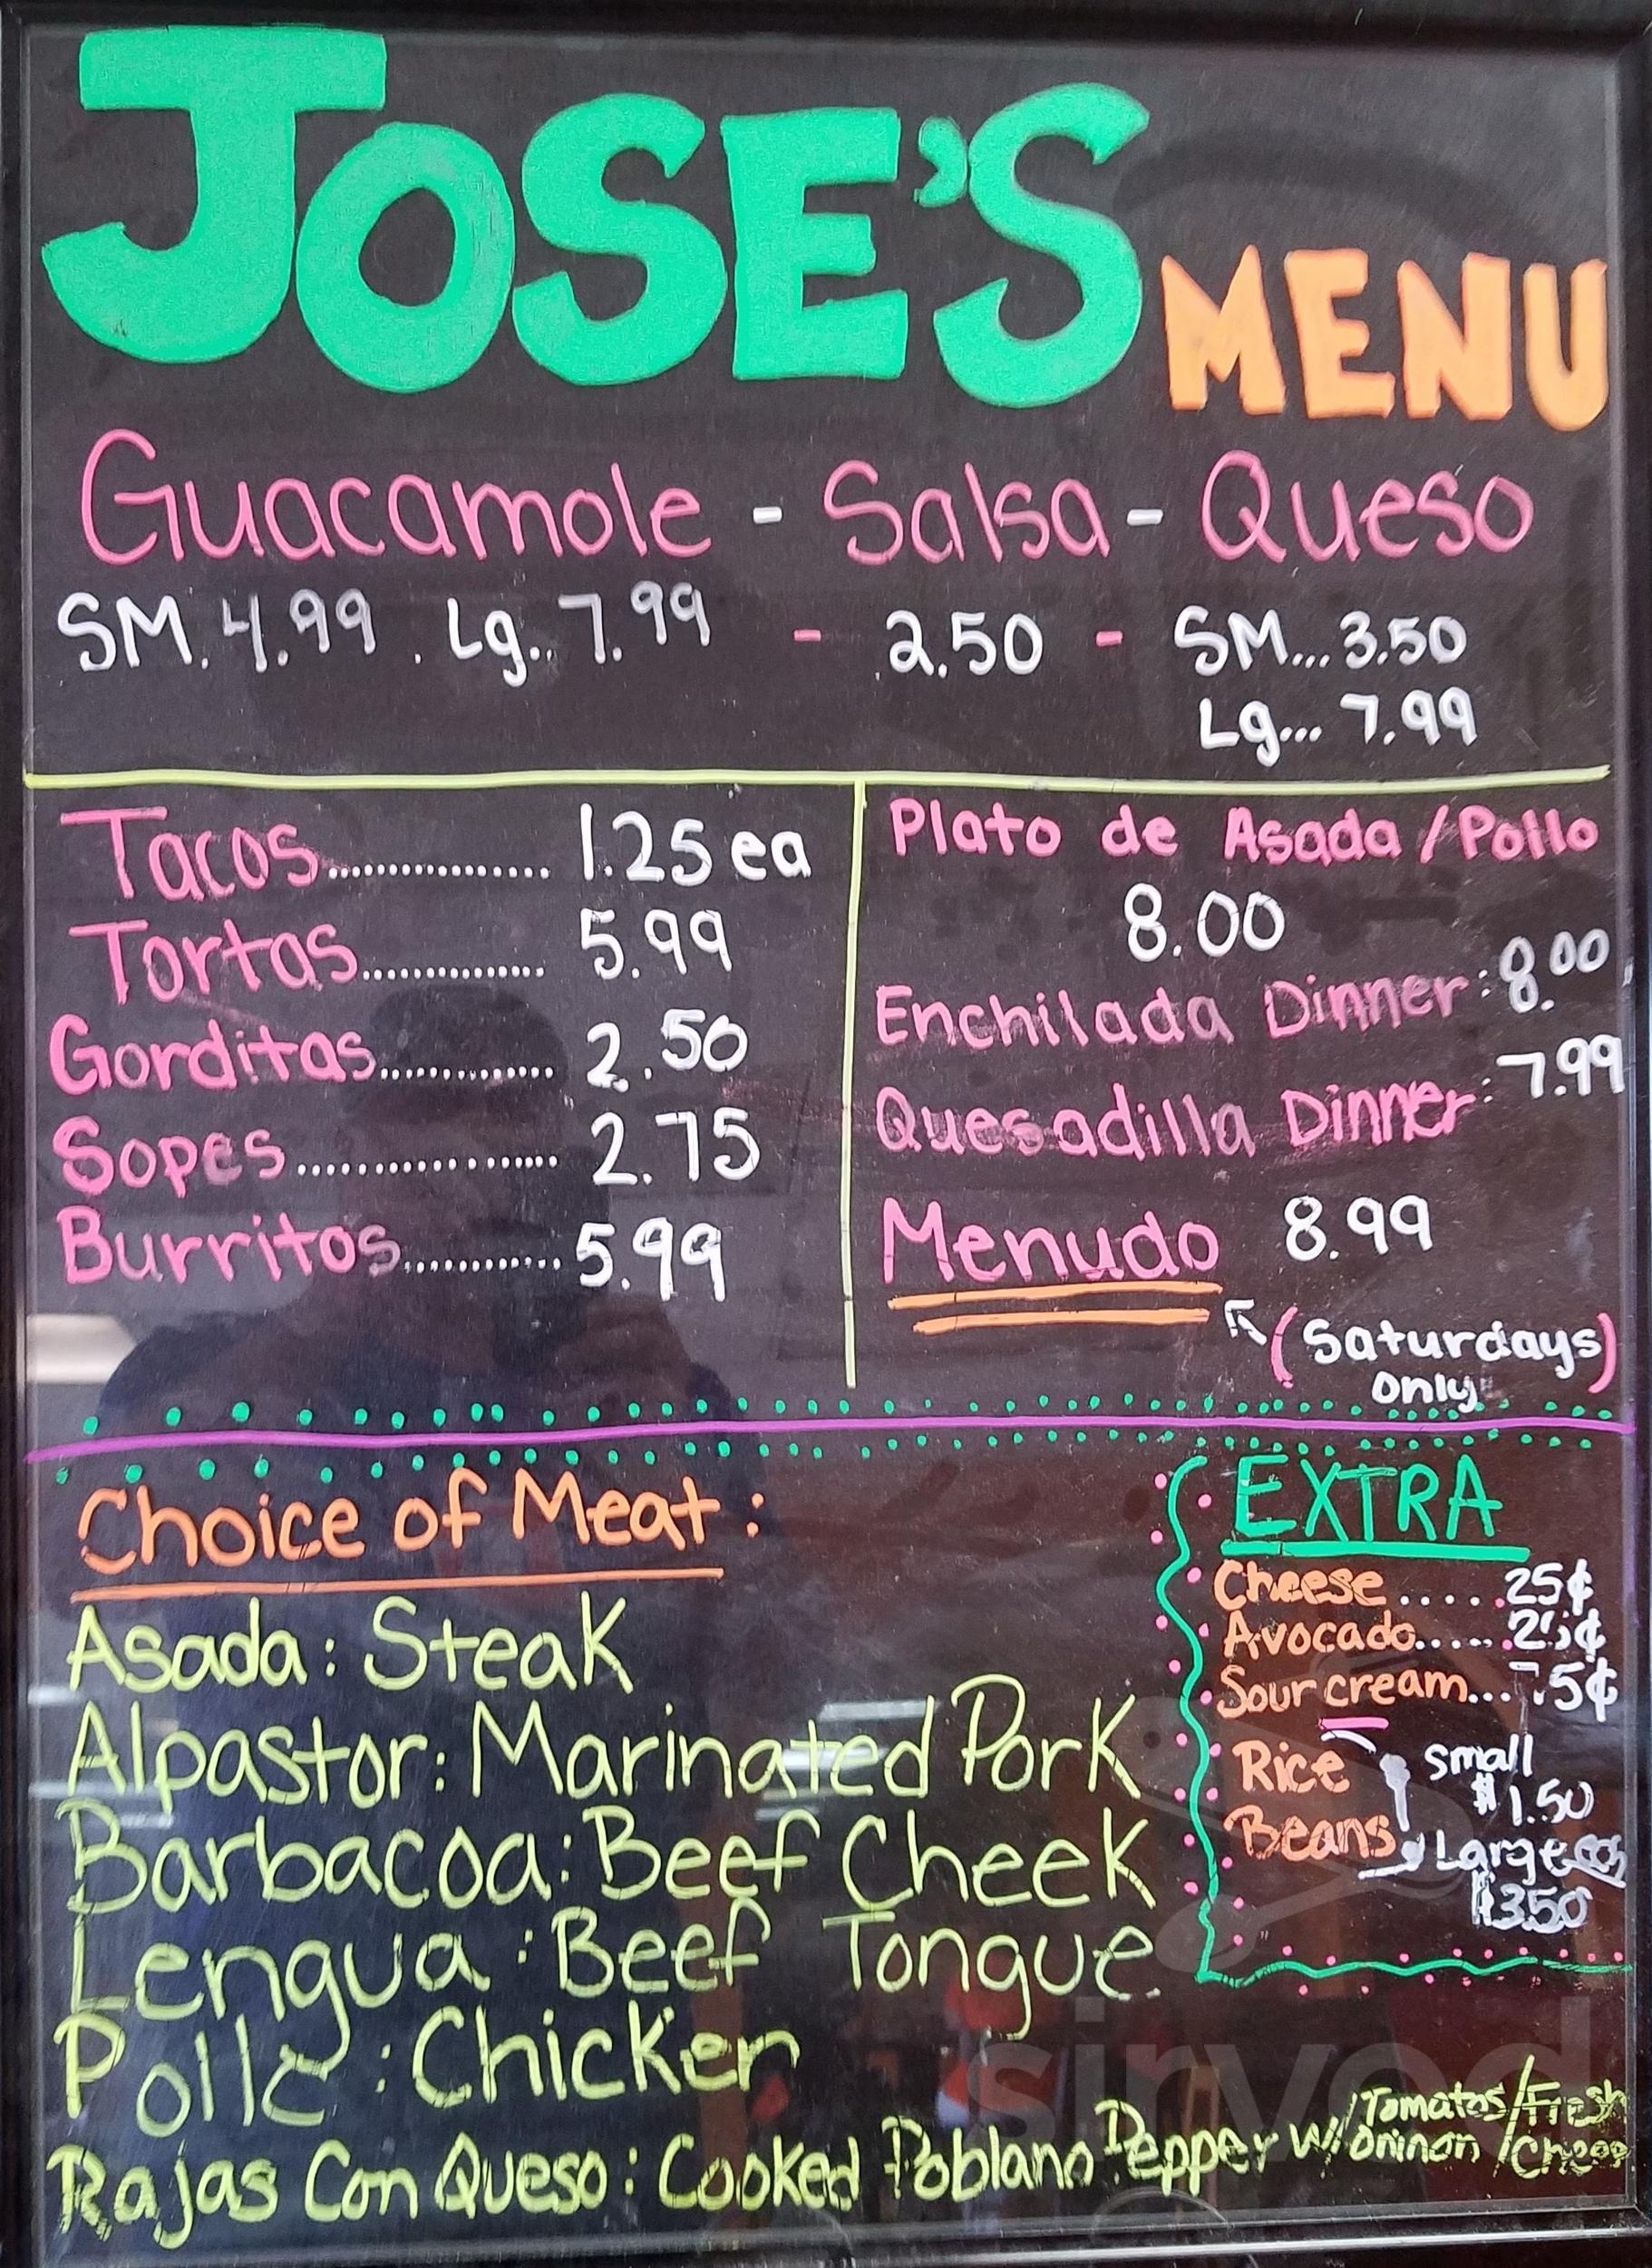 JOSE'S MENU
Guacamole - Salsa - Queso
SM. 4.99 . Lg.. 7.99 - 2.50 - SM... 3.50
Lg... 7.99
Tacos............... 1.25 ea
Tortas............. 5.99
Gorditas............. 2.50
Sopes.................. 2.75
Burritos............ 5.99
Plato de Asada / Pollo
8.00
Enchilada Dinner: 8.00
Quesadilla Dinner: 7.99
Menudo 8.99
(Saturdays)
only
Choice of Meat:
Asada: Steak
Alpastor: Marinated Pork
Barbacoa: Beef Cheek
Lengua: Beef Tongue
Pollo: Chicken
Rajas Con Queso: Cooked Poblano Pepper w/ Tomatos / Fresh
Oninon / Chees
EXTRA
Cheese ..... 25¢
Avocado.....
Sour cream...
Rice small
$1.50
Beans Large
$3.50
sirved